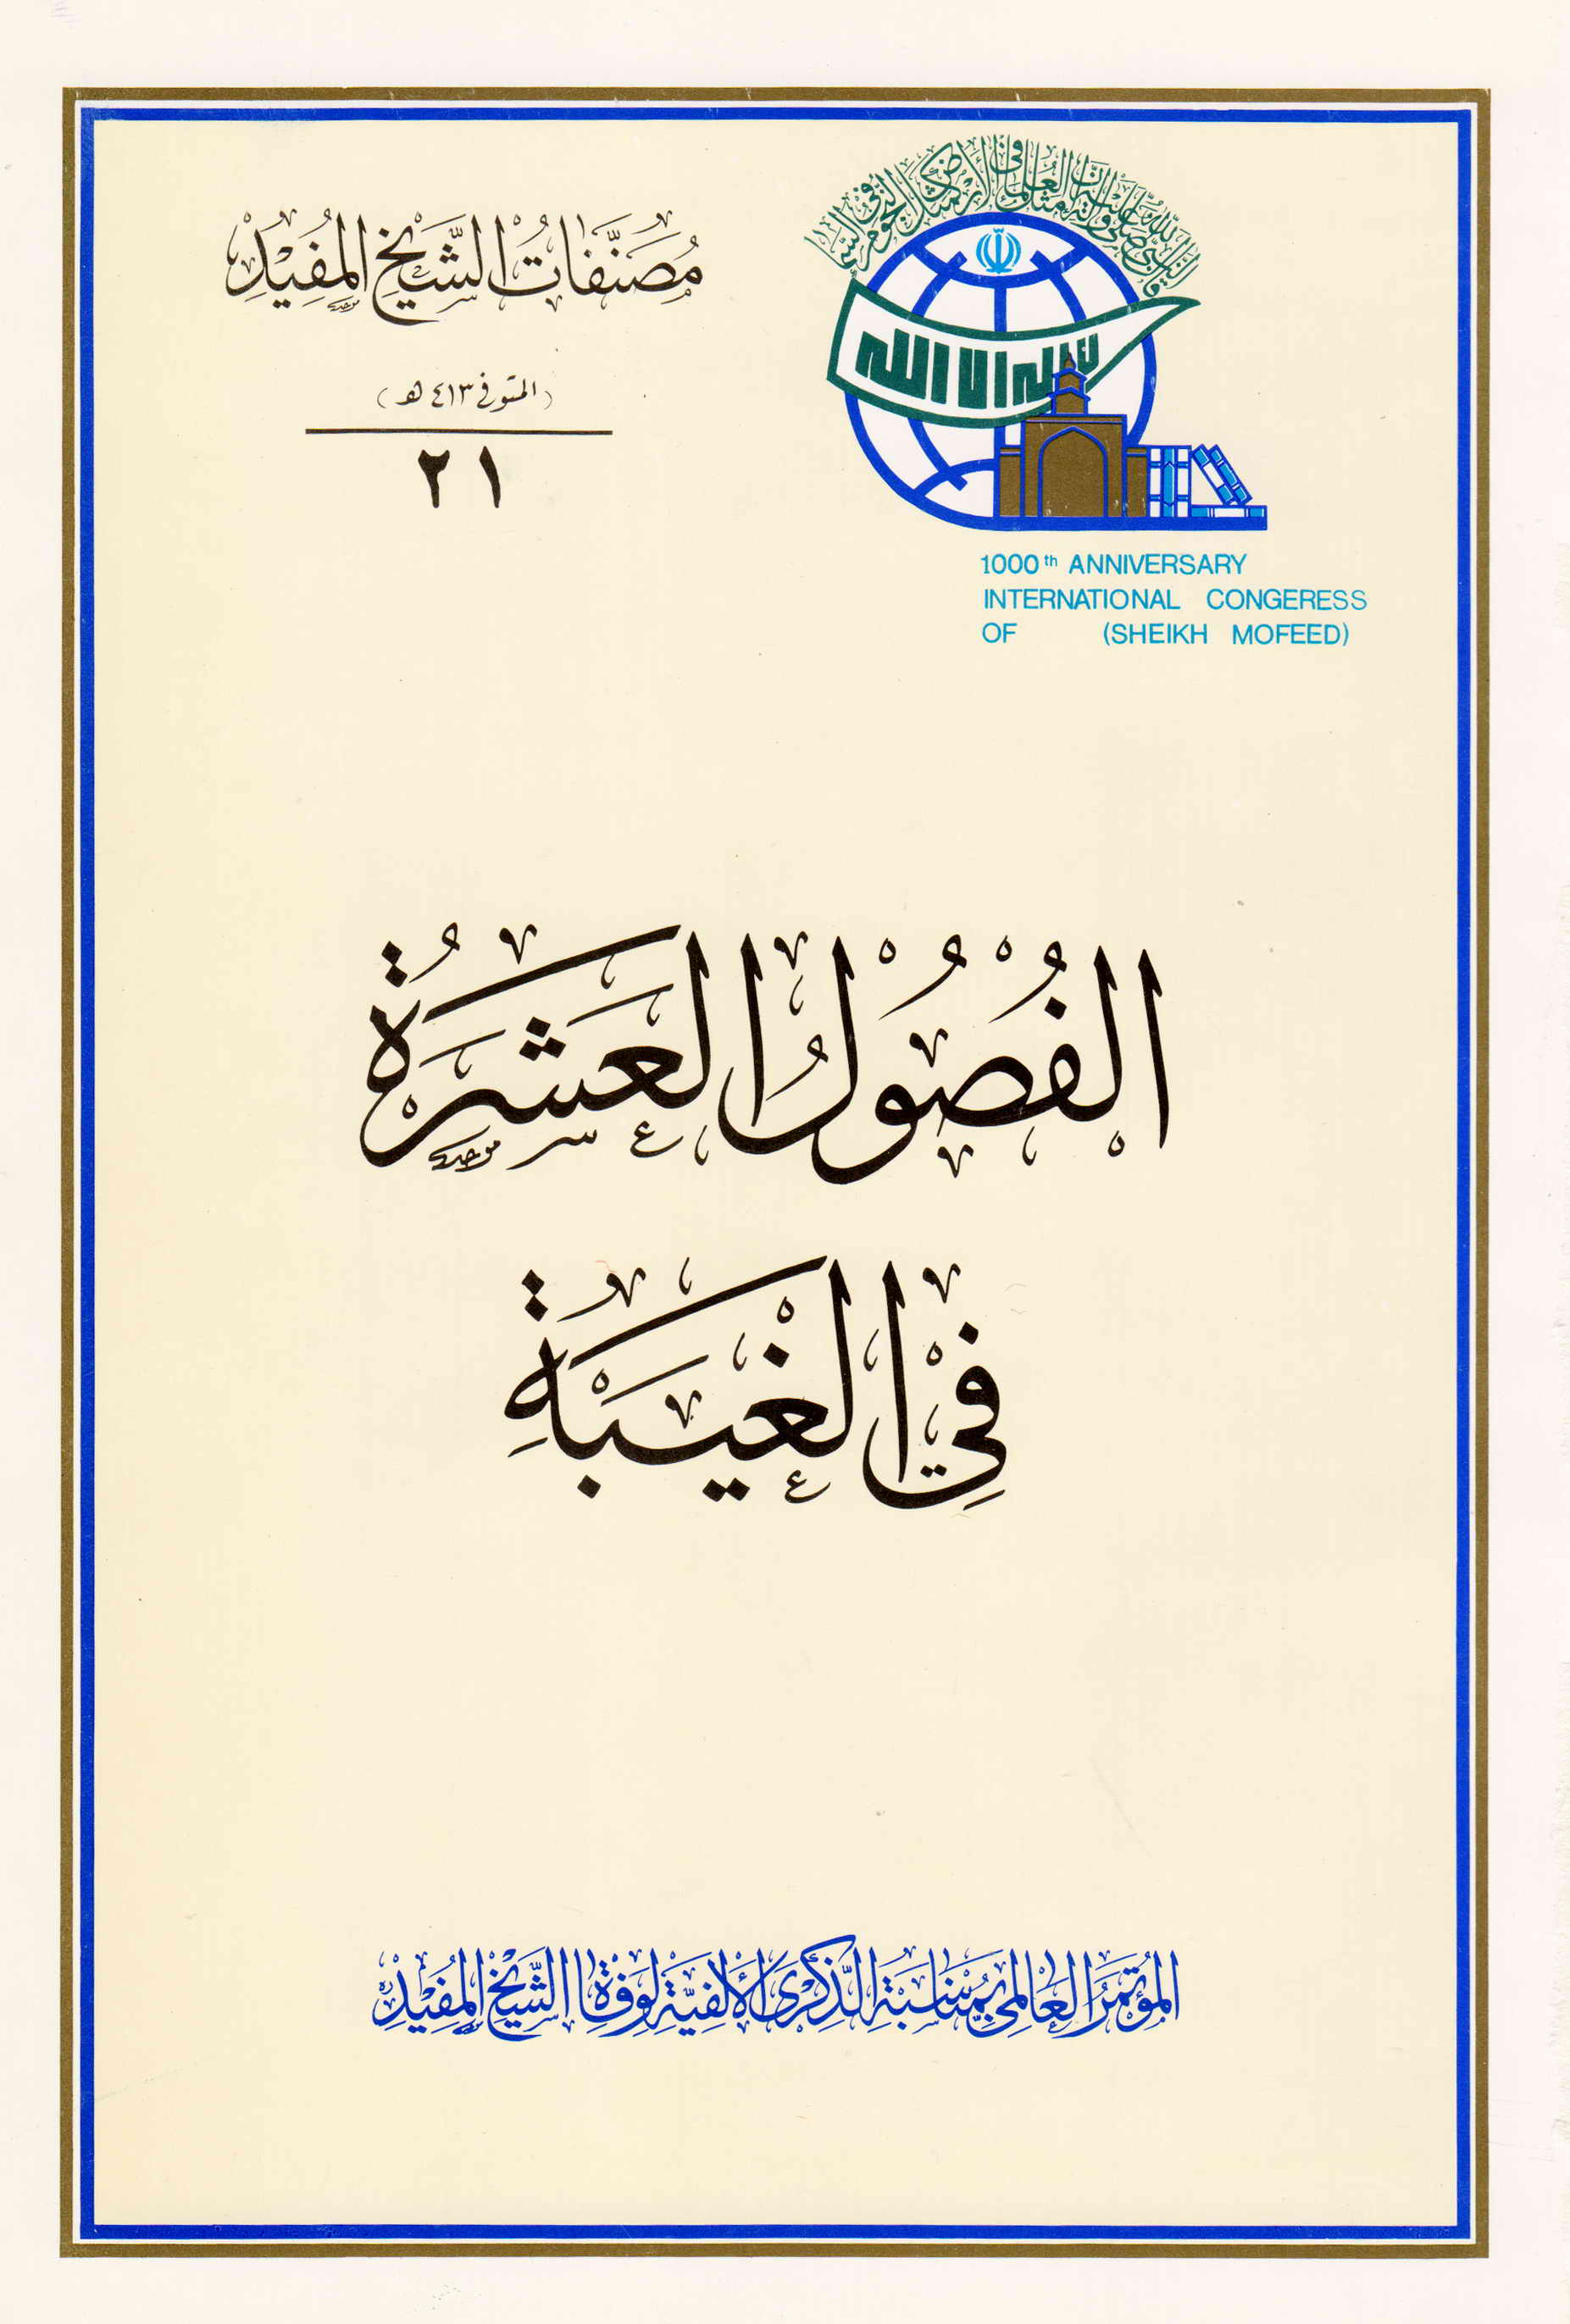 مُصَنَّفَاتُ الشَّيْخِ المُفِيْدِ
(المتوفى ٤١٣ هـ)
٢١
لا إله إلا الله
1000th ANNIVERSARY
INTERNATIONAL CONGERESS
OF (SHEIKH MOFEED)
الفُصُوْلُ العَشَرَةُ
فِي الغَيْبَةِ
المُؤْتَمَرُ العَالَمِيُّ بِمُنَاسَبَةِ الذِّكْرَى الأَلْفِيَّةِ لِوَفَاةِ الشَّيْخِ المُفِيْدِ